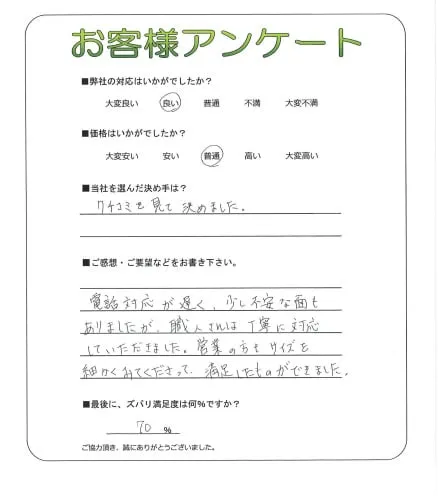 お客様アンケート
■弊社の対応はいかがでしたか?
大変良い 良い 普通 不満 大変不満
■価格はいかがでしたか?
大変安い 安い 普通 高い 大変高い
■当社を選んだ決め手は?
クチコミを見て決めました。
■ご感想・ご要望などをお書き下さい。
電話対応が遅く、少し不安な面も
ありましたが、職人さんは丁寧に対応
していただきました。営業の方もサイズを
細かくみてくださって、満足したものができました。
■最後に、ズバリ満足度は何%ですか?
70 %
ご協力頂き、誠にありがとうございました。